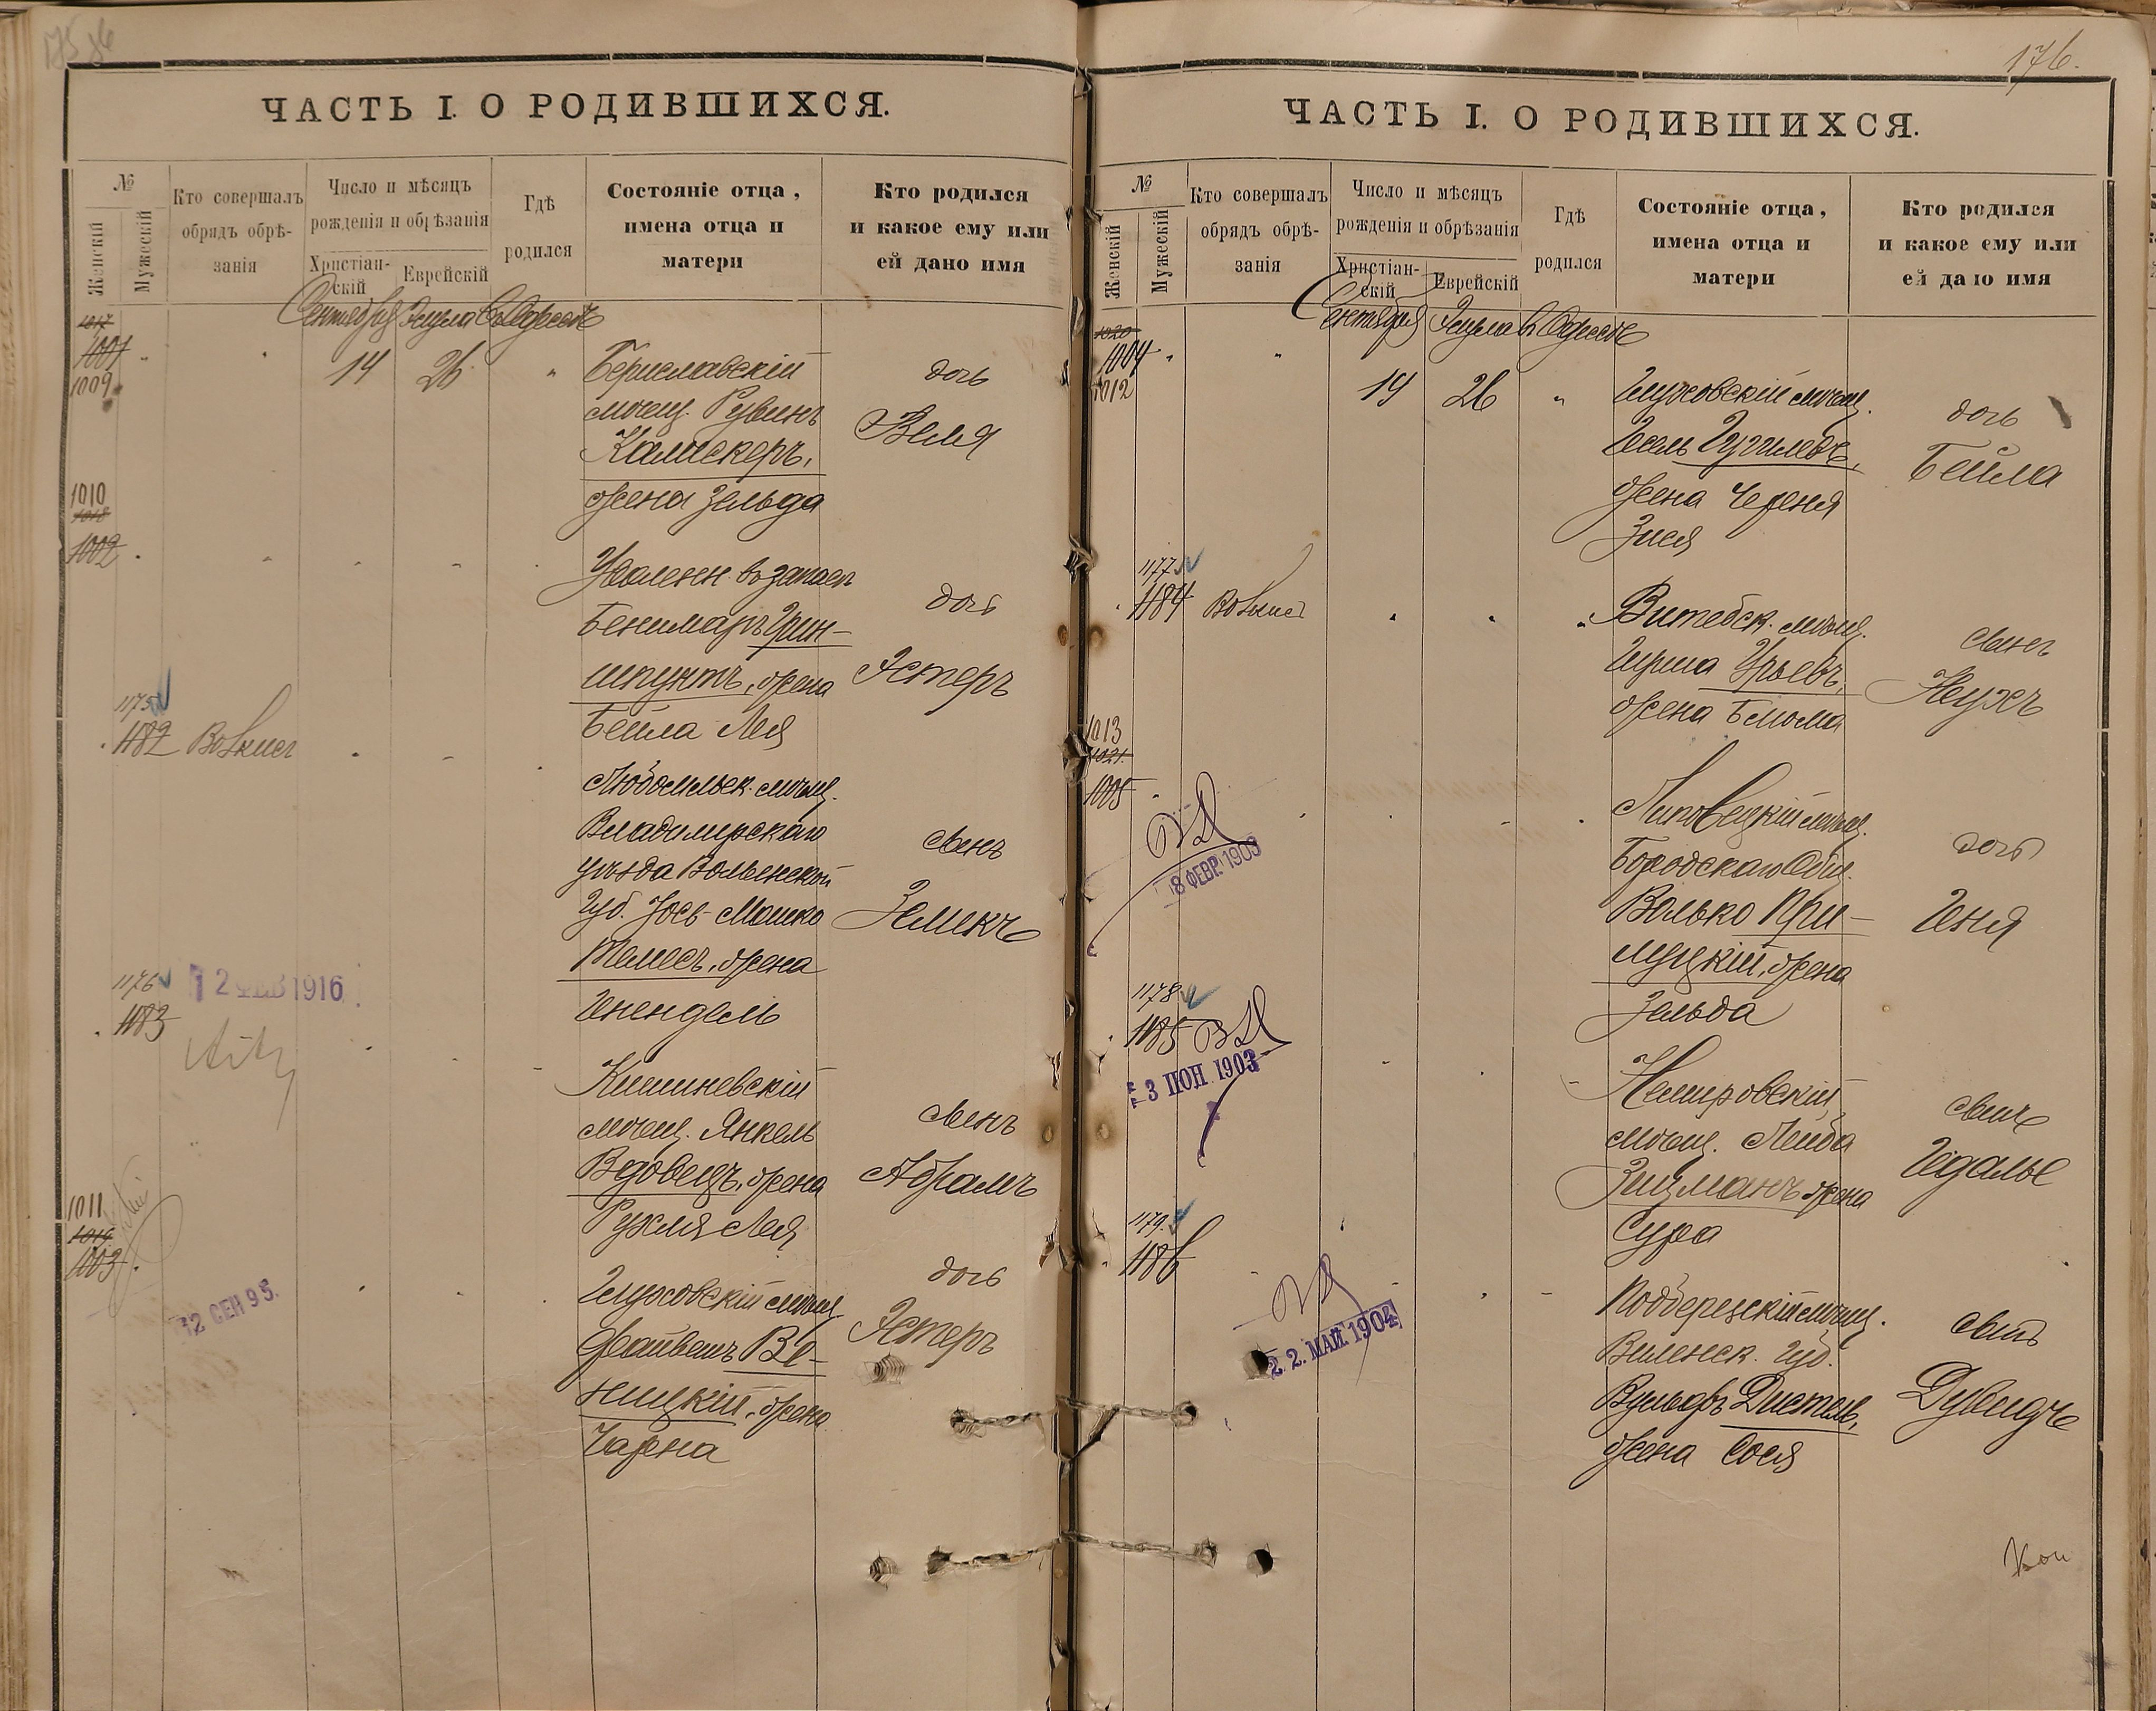 175 об
ЧАСТЬ I. О РОДИВШИХСЯ.
№
Женскій
Мужескій
Кто совершалъ
обрядъ обрѣ-
занія
Число и мѣсяцъ
рожденія и обрѣзанія
Христіан-
скій
Еврейскій
Гдѣ
родился
Состояніе отца,
имена отца и
матери
Кто родился
и какое ему или
ей дано имя
Сентября Элула въ Одессѣ
1017
1001
1009
14 26 "
Бериславскій
мѣщ. Рувинъ
Калмекеръ,
жена Зельда
дочь
Веля
1010
1018
1002
Уволенн. въ запасъ
Бениминъ Грин-
шпунтъ, жена
Бейла Лея
дочь
Эстеръ
1175
1182 Волкисъ
Любомльск. мѣщ.
Владимирскаго
уѣзда Волынской
Губ. Іось-Мошко
Телесъ, жена
Ненендель
сынъ
Зелекъ
1176
1183
12 ФЕВ 1916
Кишиневскій
мѣщ. Янкель
Вдовецъ, жена
Рухля Лея
сынъ
Абрамъ
1011
1019
1003
12 СЕН 95.
Глуховскій мѣщ.
Файвешъ Ве-
ницкій, жена
Чарна
дочь
Эстеръ
176.
ЧАСТЬ I. О РОДИВШИХСЯ.
№
Женскій
Мужескій
Кто совершалъ
обрядъ обрѣ-
занія
Число и мѣсяцъ
рожденія и обрѣзанія
Христіан-
скій
Еврейскій
Гдѣ
родился
Состояніе отца,
имена отца и
матери
Кто родился
и какое ему или
ей дано имя
Сентября Элула въ Одессѣ
1020
1004
1012
14 26 "
Глуховскій мѣщ.
Іосель Гутлевъ,
жена Черня
Зися
дочь
Бейла
1177
1184 Волкисъ
Витебск. мѣщ.
Гирша Урьевъ,
жена Блюма
сынъ
Неухъ
1013
1021
1005
8 ФЕВР. 1903
Липовецкій мѣщ.
Бородскаго Общ.
Волько При-
луцкій, жена
Зельда
дочь
Геня
1178
1185
3 ІЮН 1903
Немировскій
мѣщ. Лейба
Зицманъ жена
Сура
сынъ
Гедалье
1179
1186
22. МАЙ 1904
Подберезскій мѣщ.
Виленск. Губ.
Вульфъ Дистель,
жена Сося
сынъ
Дувидъ